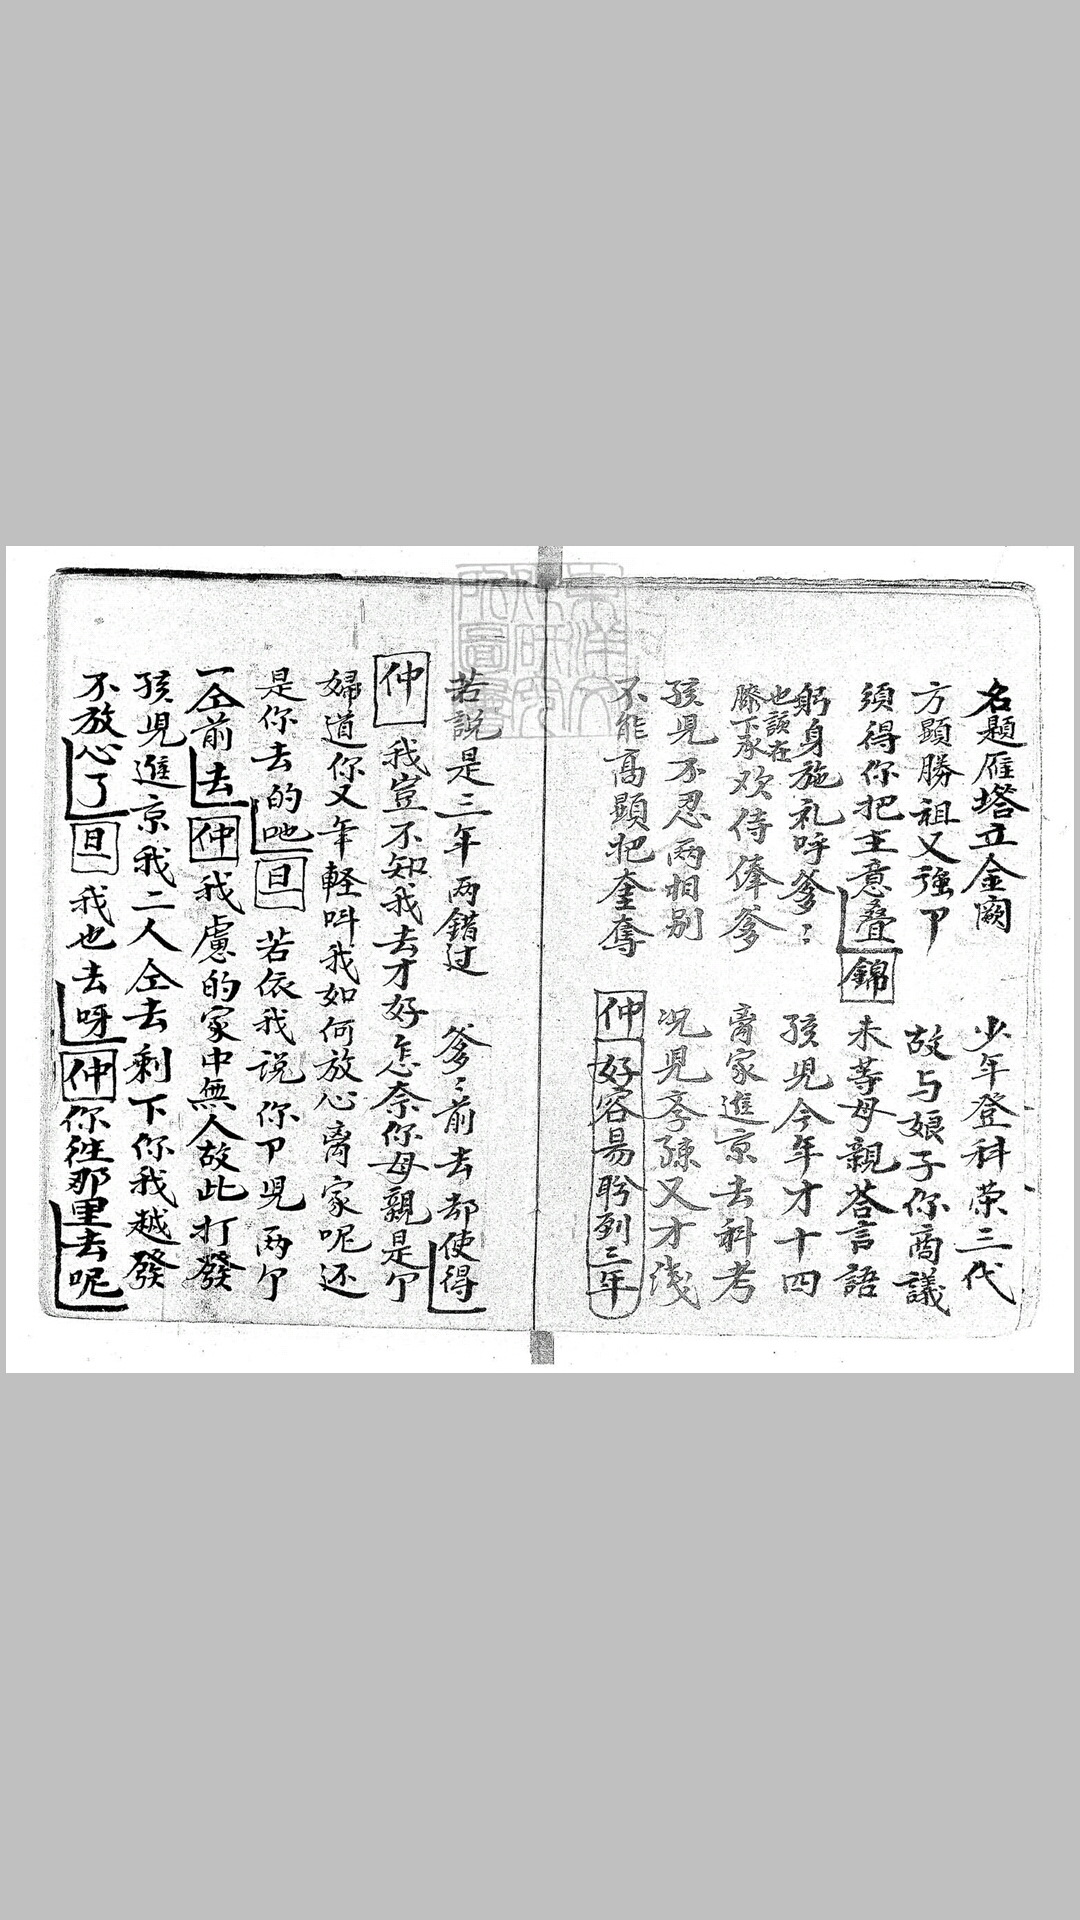 名題雁塔立金闕　少年登科荣三代
方顯勝祖又強卩　故与娘子你商議
須得你把主意叠　錦　未等母親荅言語
躬身施礼呼爹〻　孩児今年才十四
也該在膝下承欢侍俸爹　离家進京去科考
孩児不忍两相别　况児孝疎又才浅
不能高顯把奎奪　仲　好容易盻到三年
若説是三年两錯过　爹〻前去都使得
仲　我豈不知我去才好怎奈你母親是卩
婦道你又年軽呌我如何放心离家呢还
是你去的吔　旦　若依我説你卩児两卩
一仝前去　仲　我慮的家中無人故此打發
孩児進京我二人仝去剩下你我越發
不放心了　旦　我也去呀　仲　你徃那里去呢